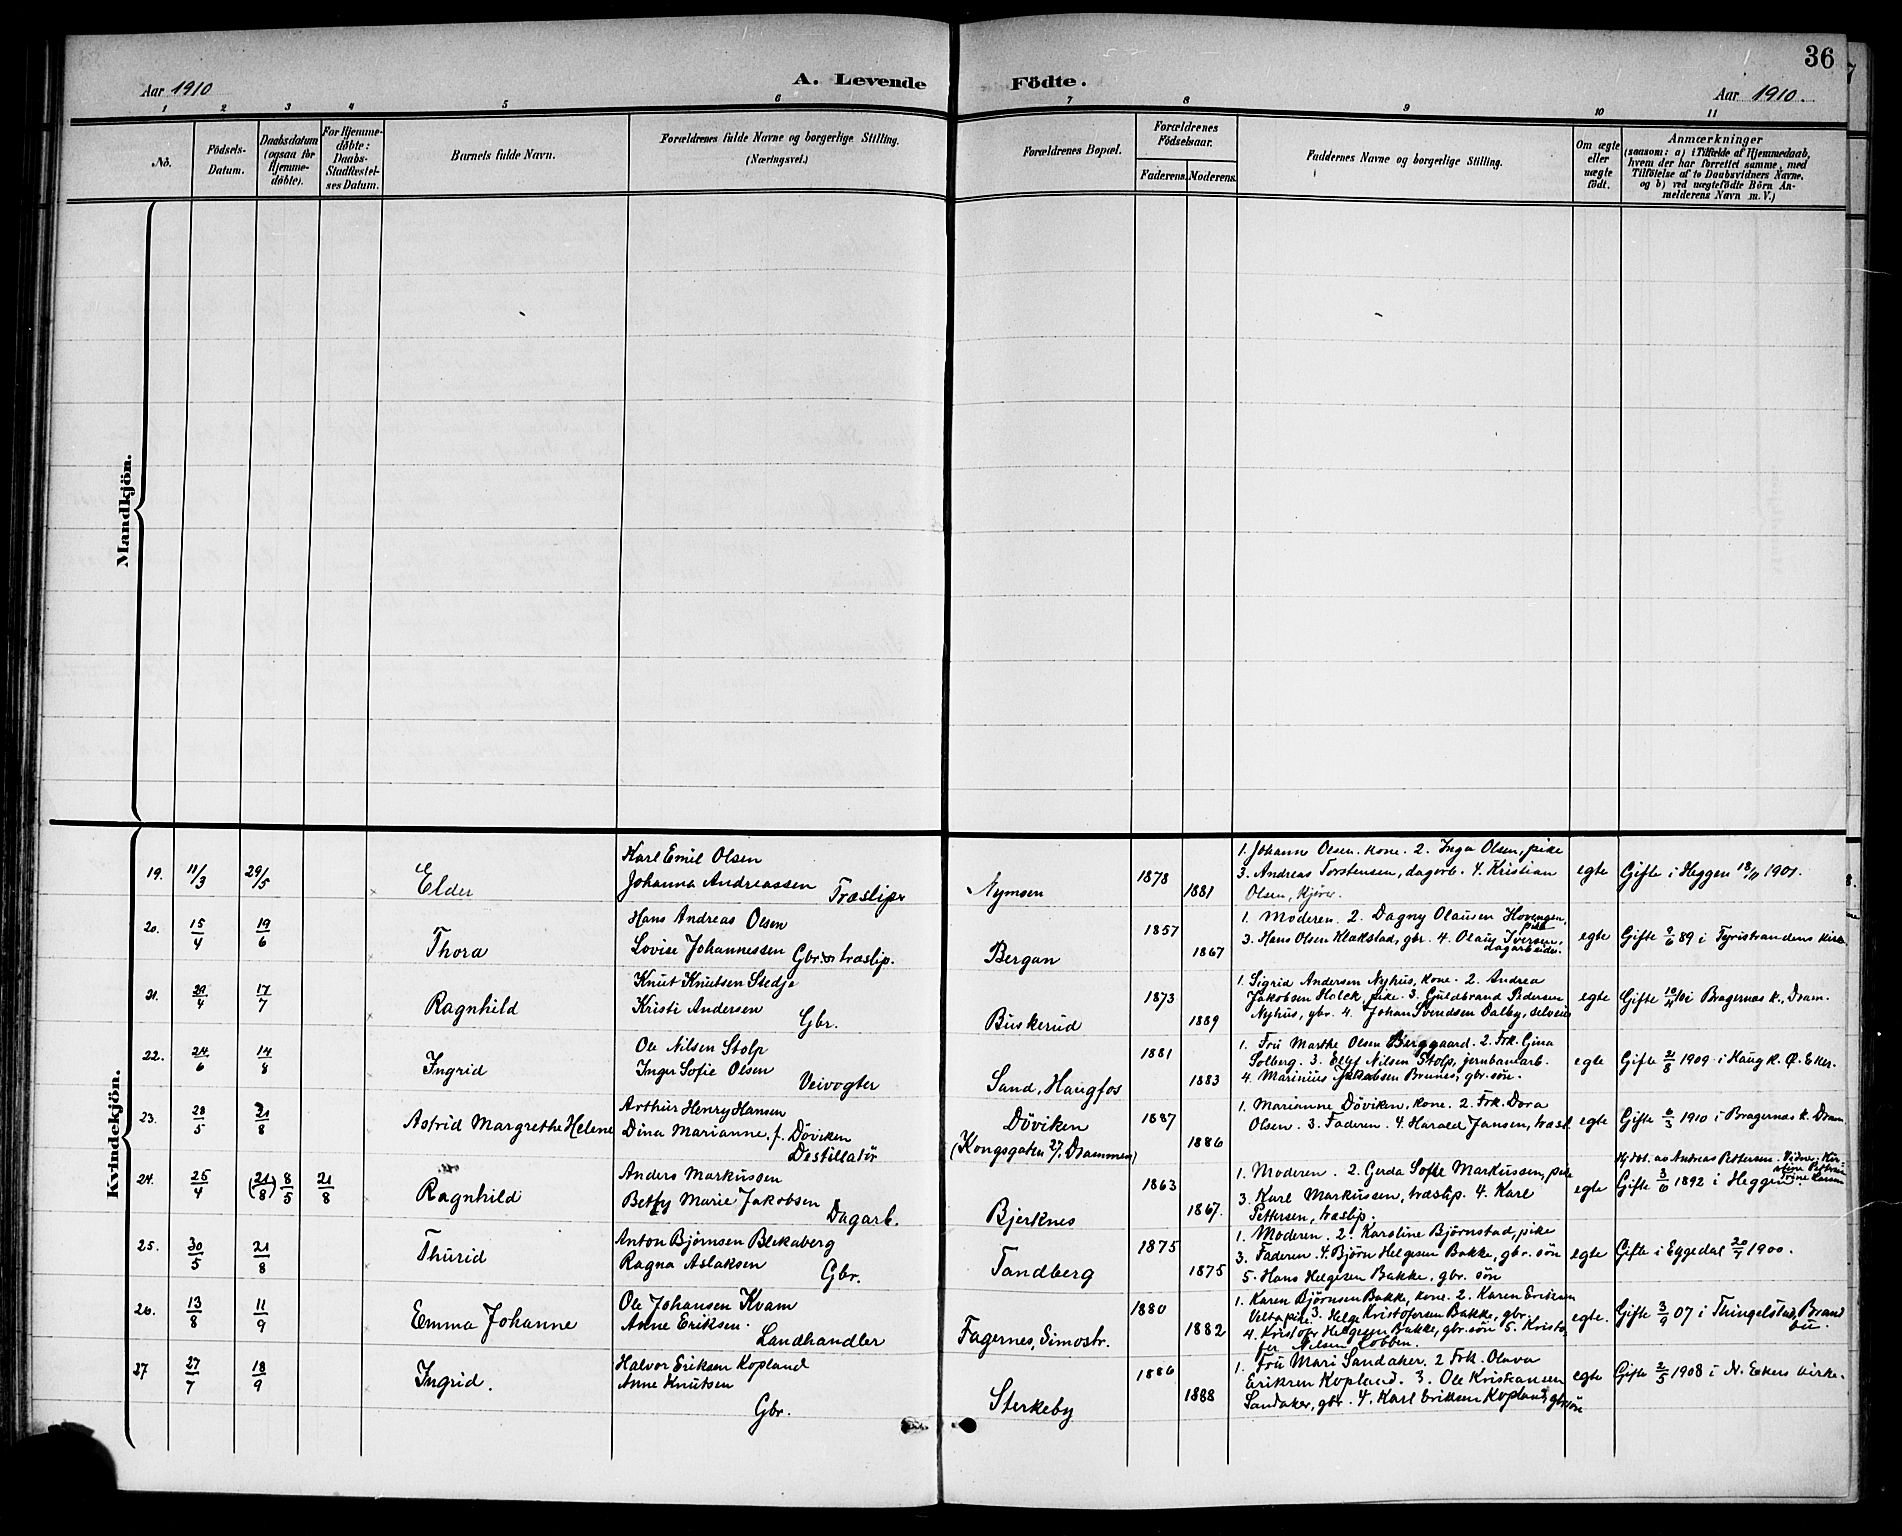 36
Aar 1910
A. Levende Födte.
Aar 1910.
1 2 3 4 5 6 7 8 9 10 11
No.
Födsels-Datum.
Daabsdatum (ogsaa for Hjemmedøbte).
For Hjemmedøbte: Daabs-Stadfæstelses Datum.
Barnets fulde Navn.
Forældrenes fulde Navne og borgerlige Stilling.
(Næringsvei.)
Forældrenes Bopæl.
Forældrenes Födselsaar.
Faderens. Moderens.
Faddernes Navne og borgerlige Stilling.
Om ægte eller uægte født.
Anmærkninger
(saasom: a) i Tilfælde af Hjemmedaab,
hvem der har forrettet samme, med
Tilföielse af to Daabsvidners Navne,
og b) ved uægtefödte Börn An-
melderens Navn m. V.)
Mandkjön.
Kvindekjön.
19. 11/3 29/5 Elder
Karl Emil Olsen
Johanna Andreassen Træslip
Nymoen 1878 1881
1. Johanne Olsen, kone. 2. Inga Olsen, pike
3. Andreas Torstensen, dagarb. 4. Kristian
Olsen,
egte Gifte i Heggen 18/11 1901.
20. 15/4 19/6 Thora
Hans Andreas Olsen
Lovise Johannessen Gbr. træslip.
Bergan 1857 1867
1. Moderen. 2. Dagny Olausen Hovengen,
pike
3. Hans Olsen Klækstad, gbr. 4. Olaus Iversen,
dagarbeider.
egte Gifte 9/6 89 i Tyristrandens kirke
21. 29/4 17/7 Ragnhild
Knut Knutsen Stedje
Kristi Andersen Gbr.
Buskerud 1873 1889
1. Sigrid Andersen Nyhus, kone. 2. Andrea
Jakobsen Holck, pike. 3. Guldbrand Pedersen
Nyhus, gbr. 4. Johan Svendsen Dalby, selveier
egte Gifte i Bragernæs k., Dram.
22. 24/6 14/8 Ingrid
Ole Nilsen Stolp
Inger Sofie Olsen Veivogter
Sand, Haugfos 1881 1883
1. Fru Marthe Olsen Berggaard. 2. Frk. Gina
Solberg. 3. Elef Nilsen Stolp, jernbanearb.
4. Marinius Jakobsen Brunes, gbr. søn.
egte Gifte 21/8 1909 i Haug k. Ø. Eker.
23. 28/5 21/8 Astrid Margrethe Helene
Arthur Henry Hansen
Dina Marianne, f. Döviken
Destillatør
Döviken
(Kongsgaten 27, Drammen) 1887 1886
1. Marianne Döviken, kone. 2. Frk. Dora
Olsen. 3. Faderen. 4. Harald Jansen, træsl.
egte Gifte 6/3 1910 i Bragernæs k. Dram
24. 25/4 (21/8) 8/5 21/8 Ragnhild
Anders Markussen
Betty Marie Jakobsen Dagarb.
Bjerknes 1863 1867.
1. Moderen. 2. Gerda Sofie Markussen, pike
3. Karl Markussen, træslip. 4. Karl
Pettersen, træslip.
egte Hj. døt. av Andreas Pettersen. Vidne: Kir-
stine Pettersen
Trine Larsen
Gifte 3/6 1892 i Heggen
25. 30/5 21/8 Thurid
Anton Bjørnsen Blekaberg
Ragna Aslaksen Gbr.
Tandberg 1875 1875
1. Moderen. 2. Karoline Bjørnstad, pike
3. Faderen. 4. Bjørn Helgesen Bakke, gbr. søn
5. Hans Helgesen Bakke, gbr. søn
egte Gifte i Eggedal 20/7 1900.
26. 13/8 11/9 Emma Johanne
Ole Johansen Kvam
Anne Eriksen. Landhandler
Fagernes, Simostr. 1880 1882
1. Karen Bjørnsen Bakke, kone. 2. Karen Eriksen
Velta pike. 3. Helge Kristofersen Bakke, gbr.
4. Kristofer Helgesen Bakke, gbr. søn 5. Kristo-
fer Nilsen Lobben.
egte. Gifte 3/9 07 i Thingelstad, Brand
bu.
27 27/7 18/9 Ingrid.
Halvor Eriksen Kopland
Anne Knutsen Gbr.
Sterkeby 1886 1888
1. Fru Mari Sandaker. 2 Frk. Olava
Eriksen Kopland. 3. Ole Kristiansen
Sandaker, gbr. 4. Karl Eriksen Kopland, gbr søn
egte Gifte 2/5 1908 i N. Ekers kirke.